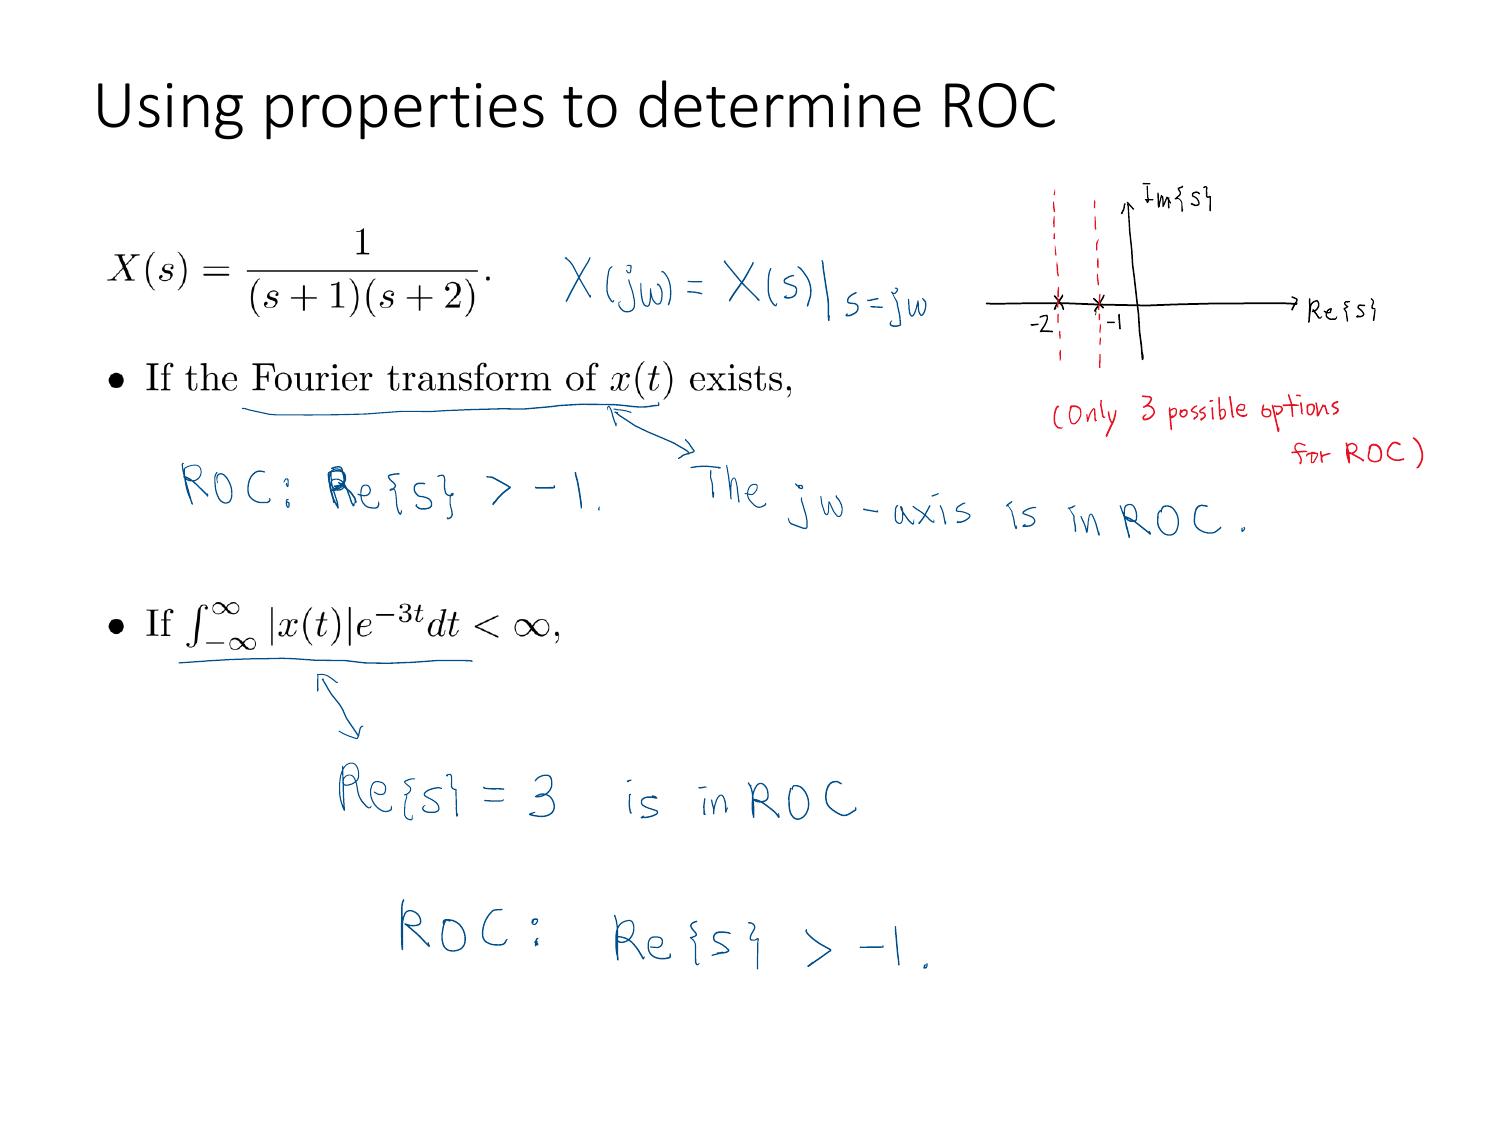 Using properties to determine ROC
X(s) = 1 / (s + 1)(s + 2).
X(jw) = X(s)|s=jw
Im{s}
Re{s}
-2
-1
(Only 3 possible options
for ROC)
• If the Fourier transform of x(t) exists,
ROC: Re{s} > -1.
The jw-axis is in ROC.
• If ∫_{-∞}^{∞} |x(t)|e^{-3t}dt < ∞,
Re{s} = 3 is in ROC
ROC: Re{s} > -1.